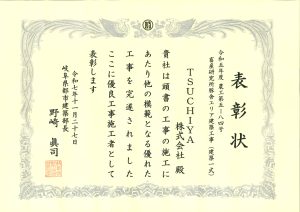 表彰状
令和五年度 農ク第五一八四号
畜産研究所豚舎エリア建築工事(建築一式)
TSUCHIYA
株式会社 殿
貴社は頭書の工事の施工に
あたり他の模範となる優れた
工事を完遂されました
ここに優良工事施工者として
表彰します
令和七年十一月二十七日
岐阜県都市建築部長
野崎 眞司